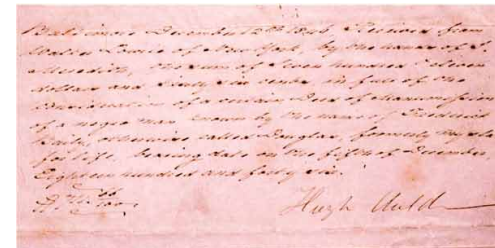 Baltimore December 12th 1846. Received from
Walter Lowrie of New York, by the hands of J.
Meredith, the sum of Seven hundred Eleven
dollars and Sixty six cents in full of the
Consideration of a certain Deed of Manumission
of a negro man known by the name of Frederick
Baily, otherwise called Douglas, formerly my slave
for life, bearing date on the fifth of December,
Eighteen hundred and forty six.
Hugh Auld